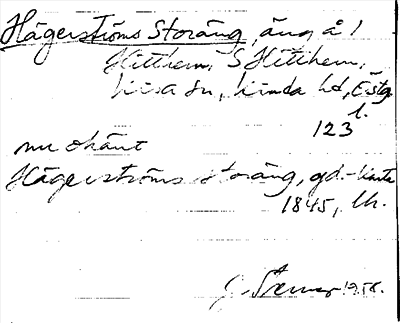 Hägerströms Storäng, äng å 1
Hitthem, S Hitthem,
Kisa sn, Kinda hd, Östg.
l.
123
nu okänt
Hägerströms storäng, gd.-karta
1845, lk.
1958.